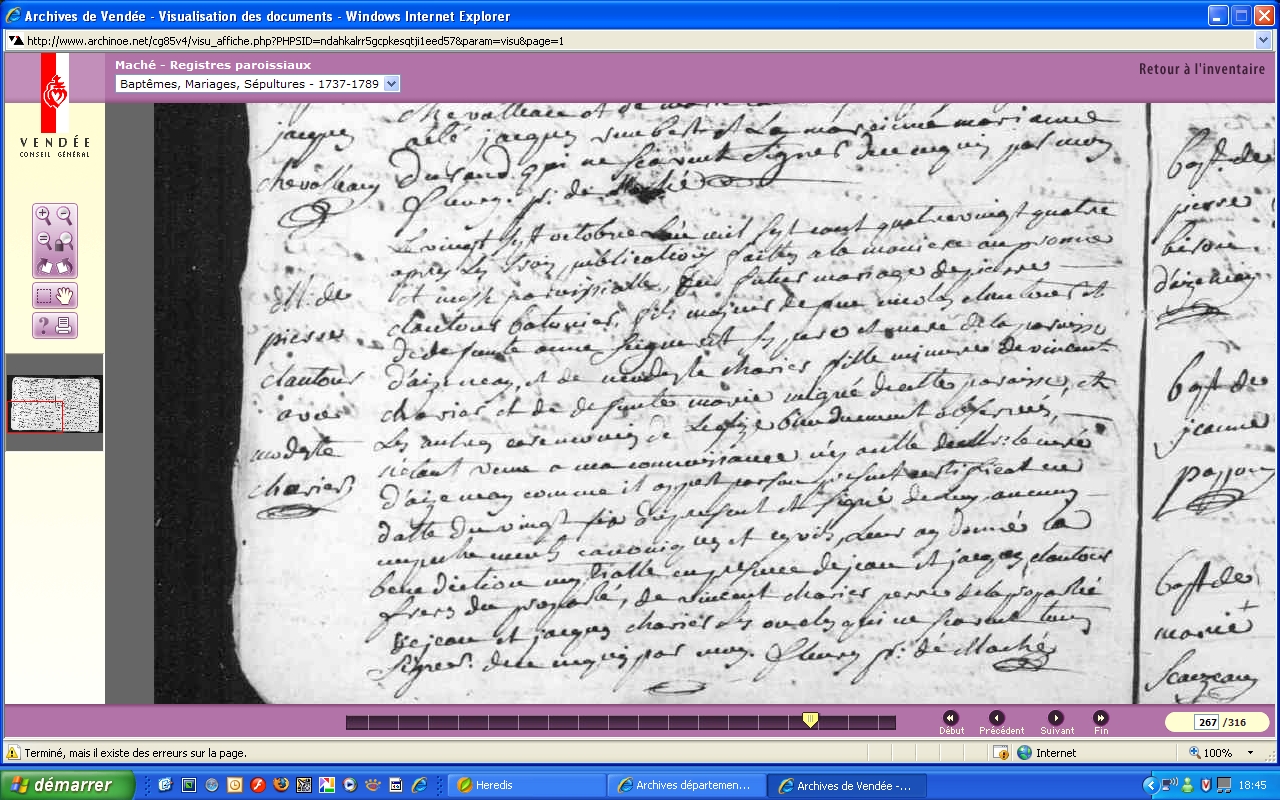 Archives de Vendée - Visualisation des documents - Windows Internet Explorer
http://www.archinoe.net/cg85v4/visu_affiche.php?PHPSID=ndahkalrr5gcpkesqtji1eed57&param=visu&page=1
Maché - Registres paroissiaux
Baptêmes, Mariages, Sépultures - 1737-1789
Retour à l'inventaire
VENDÉE
CONSEIL GÉNÉRAL
jacques
chevalleau
chevalleau et de
jacques et La marianne
Durand qui ne scavent signer de ce enquis par moy
fleury pr. de Maché
M. de
pierre
clautour
avec
modeste
charier
Le vingt sept octobre L'an mil sept cent quatre vingt quatre
apres les trois publications faittes a la maniere au prosne
de messe paroissialle, du futur mariage de pierre
clautour, fils majeur de feu nicolas clautour et
de defunte anne ses pere et mere de la paroisse
d'aizenay, et de modeste charier fille mineure de vincent
charier et de defunte marie migné de cette paroisse, et
Les autres ceremonies de L'eglise observées,
n'etant venu a ma connoissance ny a celle de mr: le curé
d'aizenay comme il appert par son present certificat en
datte du vingt six du present et signé de luy aucuns
empechements canoniques et civils, Leur ay donné La
benediction nuptialle en presence de jean et jacques clautour
freres du proparlé, de vincent charier pere de la proparlée
de jean et jacques charier ses oncles qui ne scavent tous
signer. de ce enquis par moy. fleury pr: de Maché
bapt de
pierre
d'aizenay
bapt de
jeanne
bapt de
marie
Début
Précédent
Suivant
Fin
267 /316
Terminé, mais il existe des erreurs sur la page.
Internet
100%
démarrer
Heredis
Archives départemen...
Archives de Vendée -...
18:45